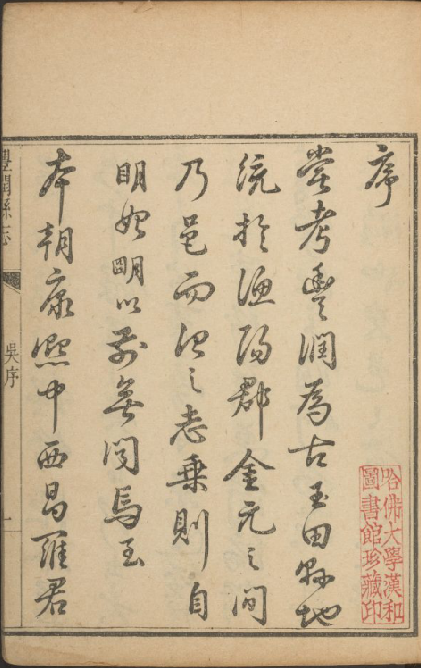 序
嘗考豐潤為古玉田縣地
統於漁陽郡金元之間
乃邑而治之志乘則自
明始明以前無聞焉至
本朝康熙中西昌羅君
豐潤縣志
吳序
一
哈佛大學漢和
圖書館珍藏印